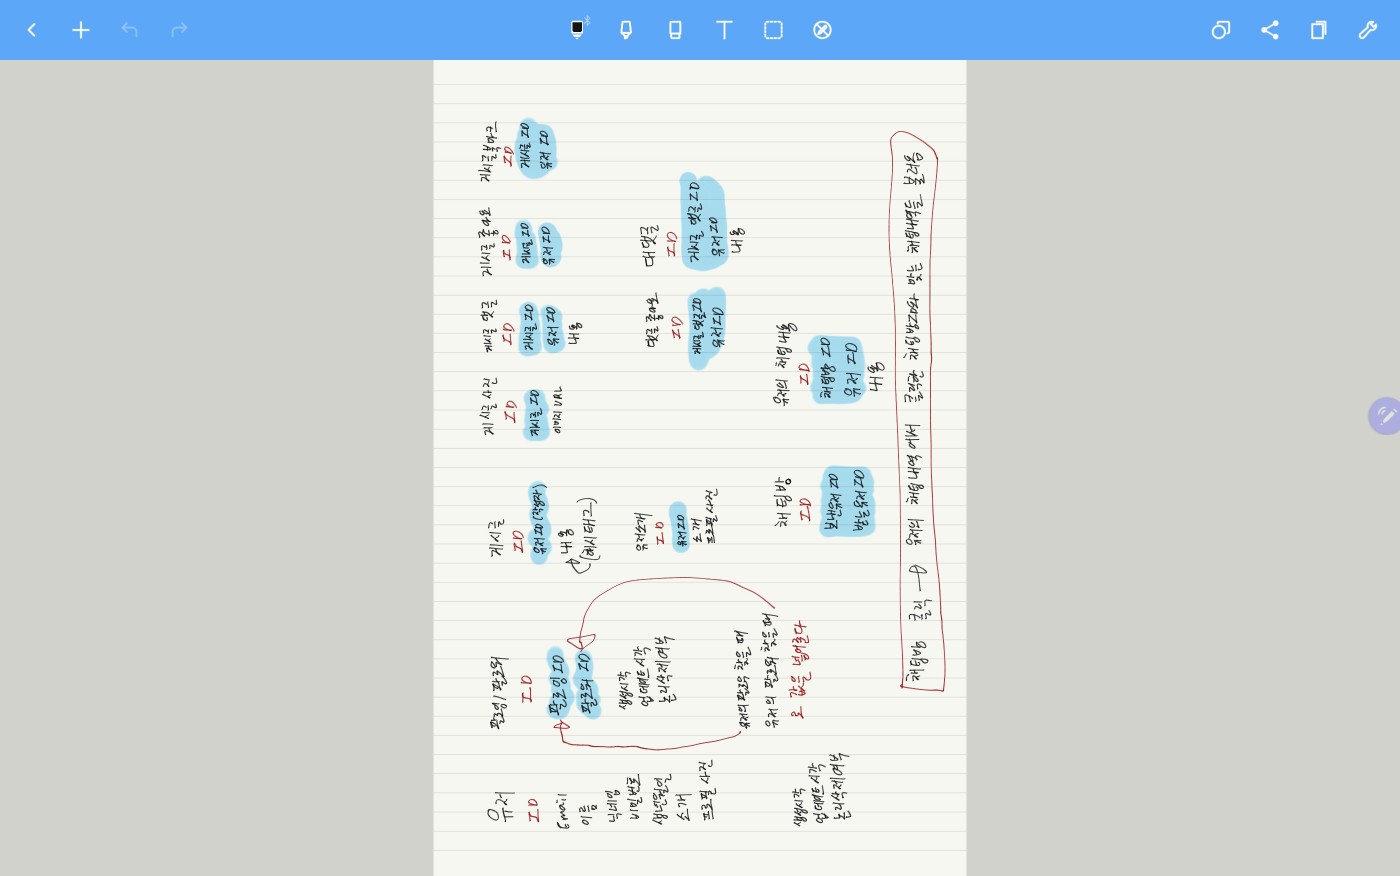 유저
ID
Email
이름
닉네임
비밀번호
생년월일
소개
프로필 사진
생성시각
업데이트 시각
논리삭제 여부
팔로잉 / 팔로워
ID
팔로잉 ID
팔로워 ID
생성시각
업데이트 시각
논리삭제 여부
유저의 팔로우 찾을 때
유저의 팔로워 찾을 때
로 값을 넘어온다
게시글
ID
유저 ID (작성자)
내용
(해시태그)
유저소개
ID
유저 ID
소개
프로필 사진
게시글 사진
ID
게시글 ID
이미지 URL
게시글 댓글
ID
게시글 ID
유저 ID
내용
게시글 좋아요
ID
게시글 ID
유저 ID
게시글 북마크
ID
게시글 ID
유저 ID
댓글 좋아요
ID
게시글 댓글 ID
유저 ID
대댓글
ID
게시글 댓글 ID
유저 ID
내용
채팅방
ID
보낸유저 ID
받는유저 ID
유저의 채팅 내용
ID
채팅방 ID
유저 ID
내용
채팅방 클릭 → 유저의 채팅내역에서 클릭한 채팅방ID와 맞는 채팅내역들 불러옴